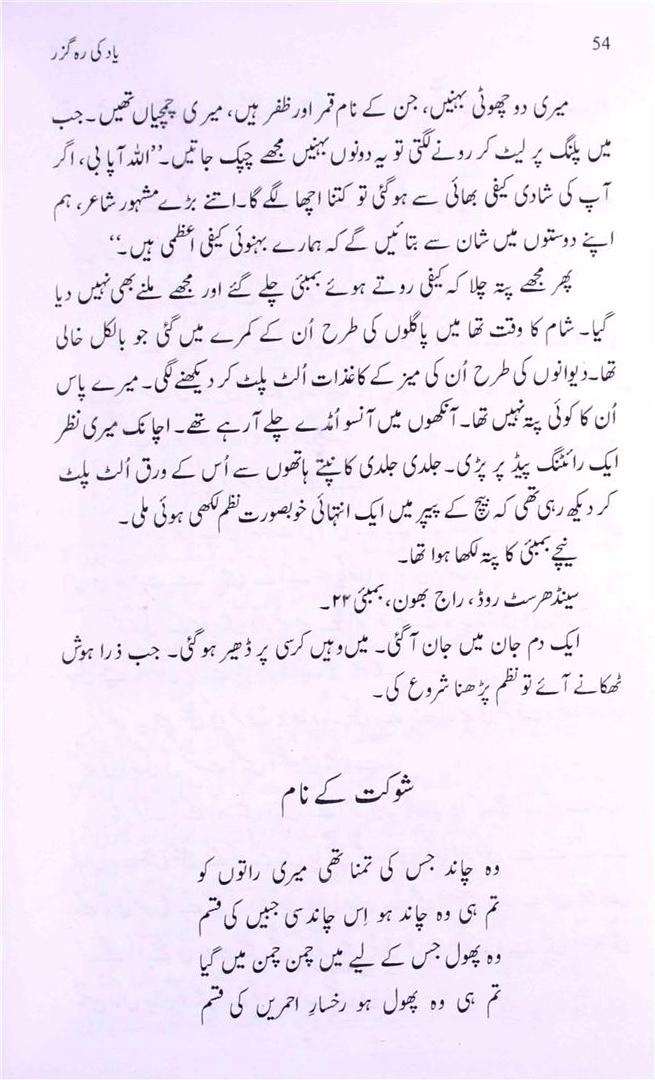 54
یاد کی رہ گزر
میری دو چھوٹی بہنیں، جن کے نام قمر اور ظفر ہیں، میری چمچیاں تھیں۔ جب
میں پلنگ پر لیٹ کر رونے لگتی تو یہ دونوں بہنیں مجھے چپک جاتیں۔ ”اللہ آپا بی، اگر
آپ کی شادی کیفی بھائی سے ہوگئی تو کتنا اچھا لگے گا۔ اتنے بڑے مشہور شاعر، ہم
اپنے دوستوں میں شان سے بتائیں گے کہ ہمارے بہنوئی کیفی اعظمی ہیں۔“
پھر مجھے پتہ چلا کہ کیفی روتے ہوئے بمبئی چلے گئے اور مجھے ملنے بھی نہیں دیا
گیا۔ شام کا وقت تھا میں پاگلوں کی طرح اُن کے کمرے میں گئی جو بالکل خالی
تھا۔ دیوانوں کی طرح اُن کی میز کے کاغذات اُلٹ پلٹ کر دیکھنے لگی۔ میرے پاس
اُن کا کوئی پتہ نہیں تھا۔ آنکھوں میں آنسو اُمڈے چلے آرہے تھے۔ اچانک میری نظر
ایک رائٹنگ پیڈ پر پڑی۔ جلدی جلدی کانپتے ہاتھوں سے اُس کے ورق اُلٹ پلٹ
کر دیکھ رہی تھی کہ بیچ کے پیپر میں ایک انتہائی خوبصورت نظم لکھی ہوئی ملی۔
نیچے بمبئی کا پتہ لکھا ہوا تھا۔
سینڈھرسٹ روڈ، راج بھون، بمبئی ۲۲۔
ایک دم جان میں جان آگئی۔ میں وہیں کرسی پر ڈھیر ہوگئی۔ جب ذرا ہوش
ٹھکانے آئے تو نظم پڑھنا شروع کی۔
شوکت کے نام
وہ چاند جس کی تمنا تھی میری راتوں کو
تم ہی وہ چاند ہو اِس چاند سی جبیں کی قسم
وہ پھول جس کے لیے میں چمن چمن میں گیا
تم ہی وہ پھول ہو رخسارِ احمریں کی قسم